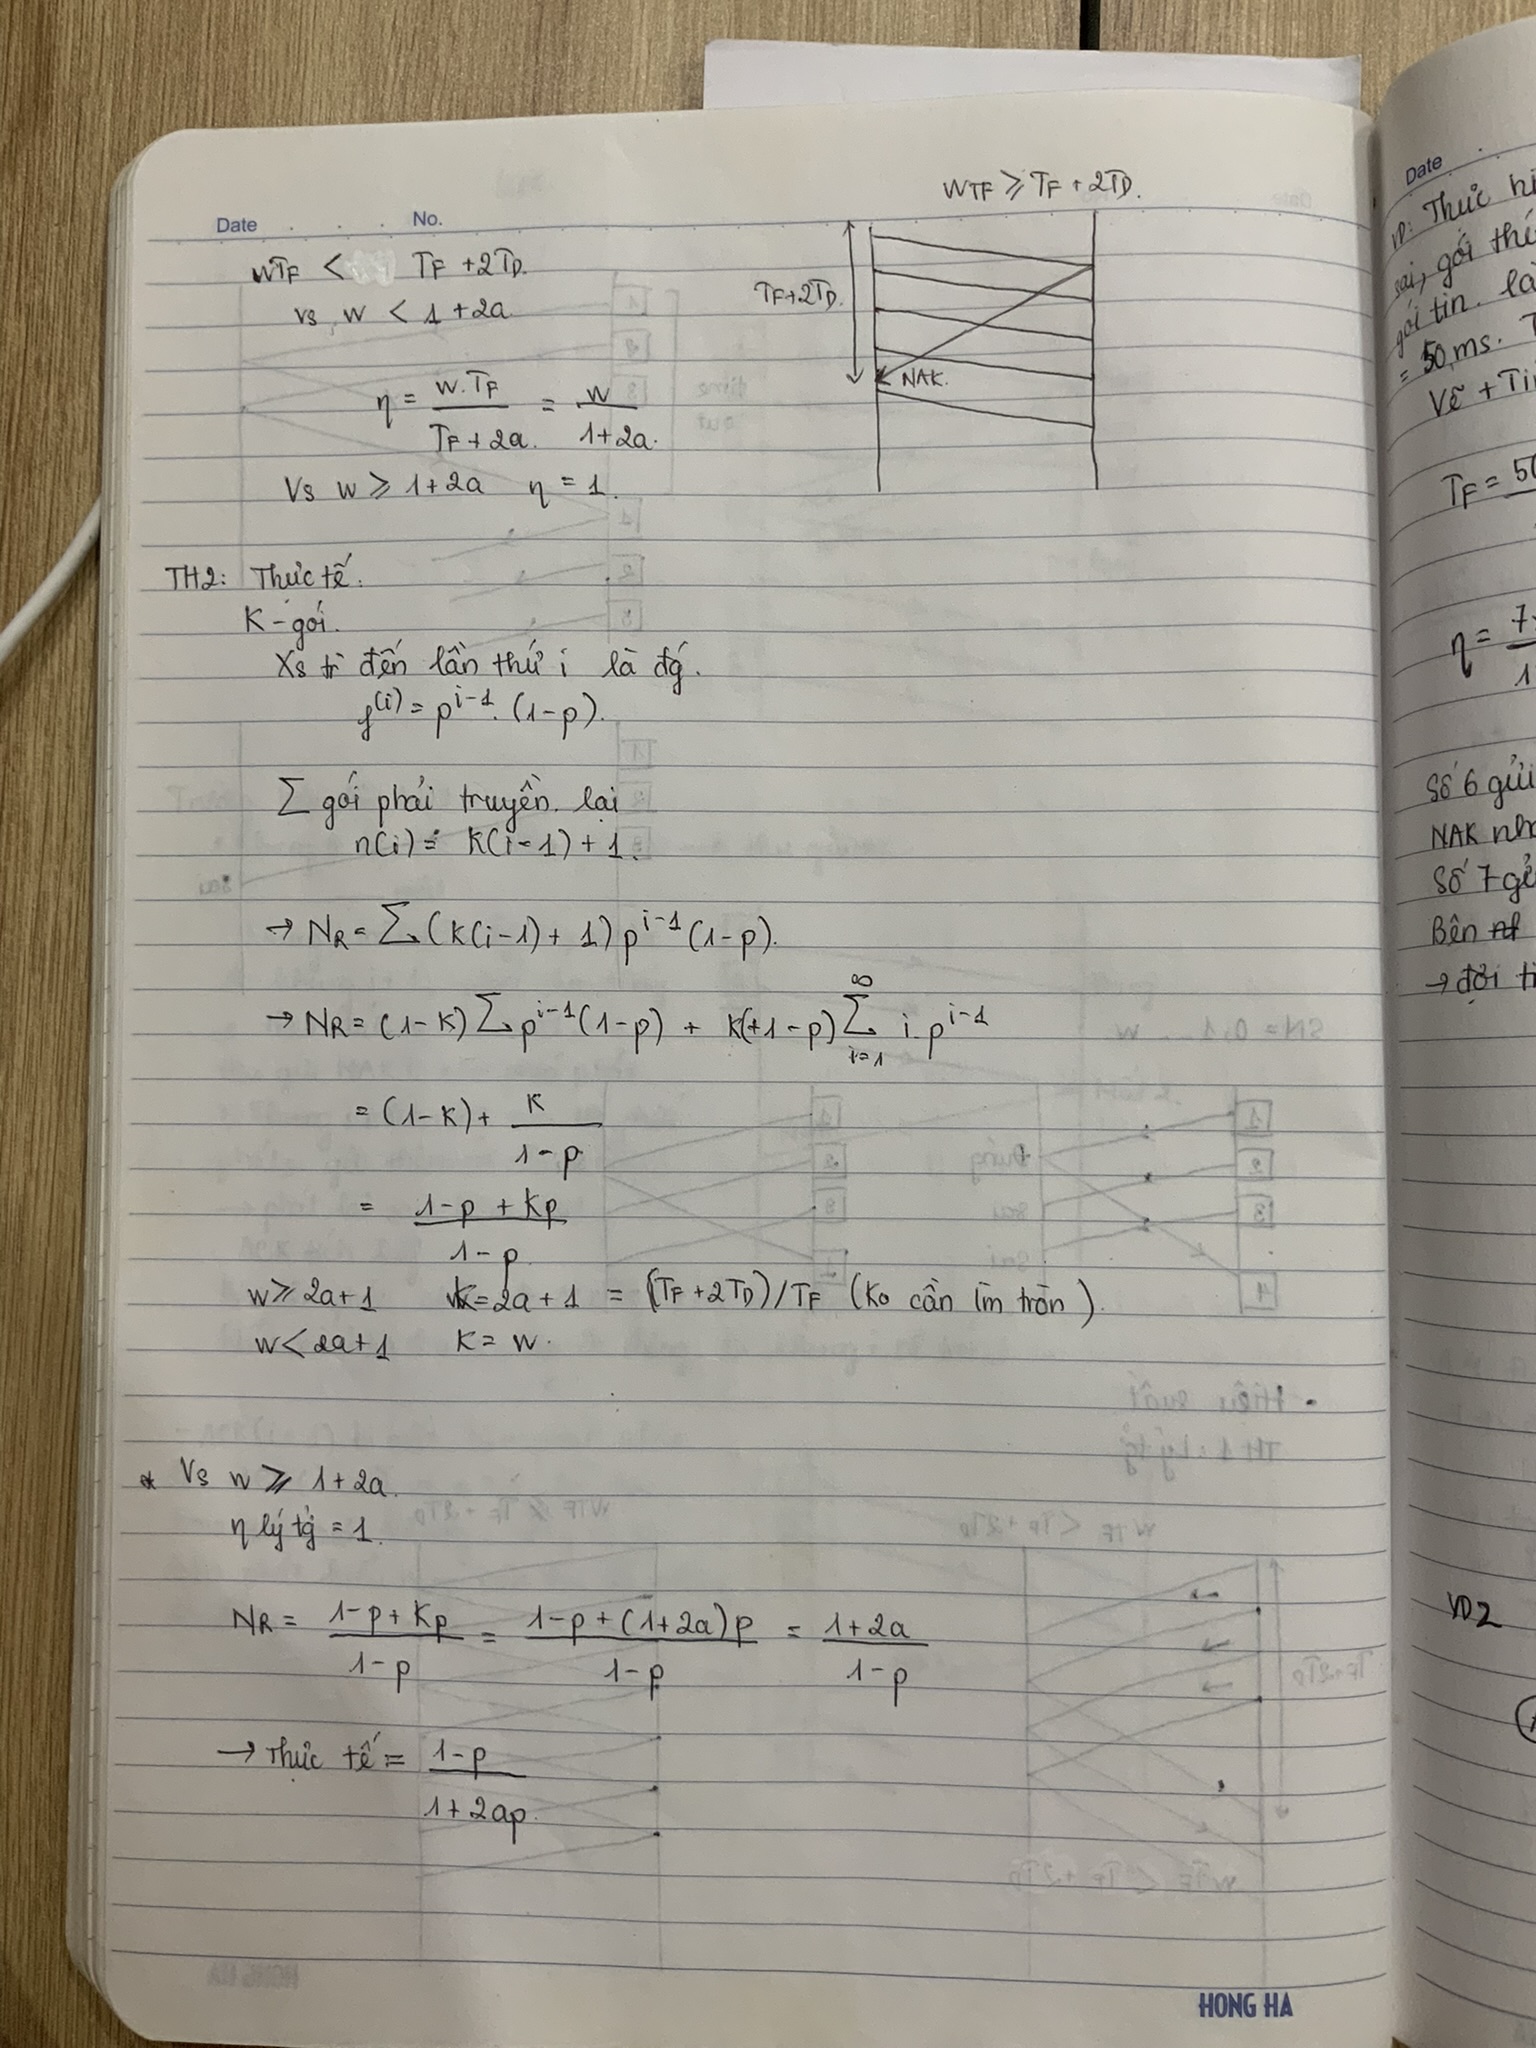 Date No.
WTF < TF + 2TD.
vs w < 1 + 2a
η = w.TF / TF + 2a. = w / 1+2a.
Vs w ≥ 1+2a η = 1.
WTF ≥ TF + 2TD.
TF+2TD.
NAK.
TH2: Thực tế.
K - gói.
Xs tr đến lần thứ i là đg.
f(i) = p^{i-1}. (1-p).
Σ gói phải truyền lại
n(i) = K(i-1) + 1.
→ NR = Σ (K(i-1) + 1) p^{i-1} (1-p).
→ NR = (1-K) Σ p^{i-1} (1-p) + K(+1-p) Σ_{i=1}^{∞} i.p^{i-1}
= (1-K) + K / 1-p
= 1-p + Kp / 1-p
w ≥ 2a+1 K = 2a+1 = (TF + 2TD)/TF (Ko cần làm tròn).
w < 2a+1 K = w.
* Vs w ≥ 1+2a.
η lý tg = 1.
NR = 1-p+Kp / 1-p = 1-p+(1+2a)p / 1-p = 1+2a / 1-p
→ Thực tế = 1-p / 1+2ap.
HONG HA
Date
VD: Thực
sai, gói
gói tin. là
= 50 ms.
Vẽ +
TF = 
η =
Số 6 gửi
NAK
Số 7
Bên
→ đợi
VD2